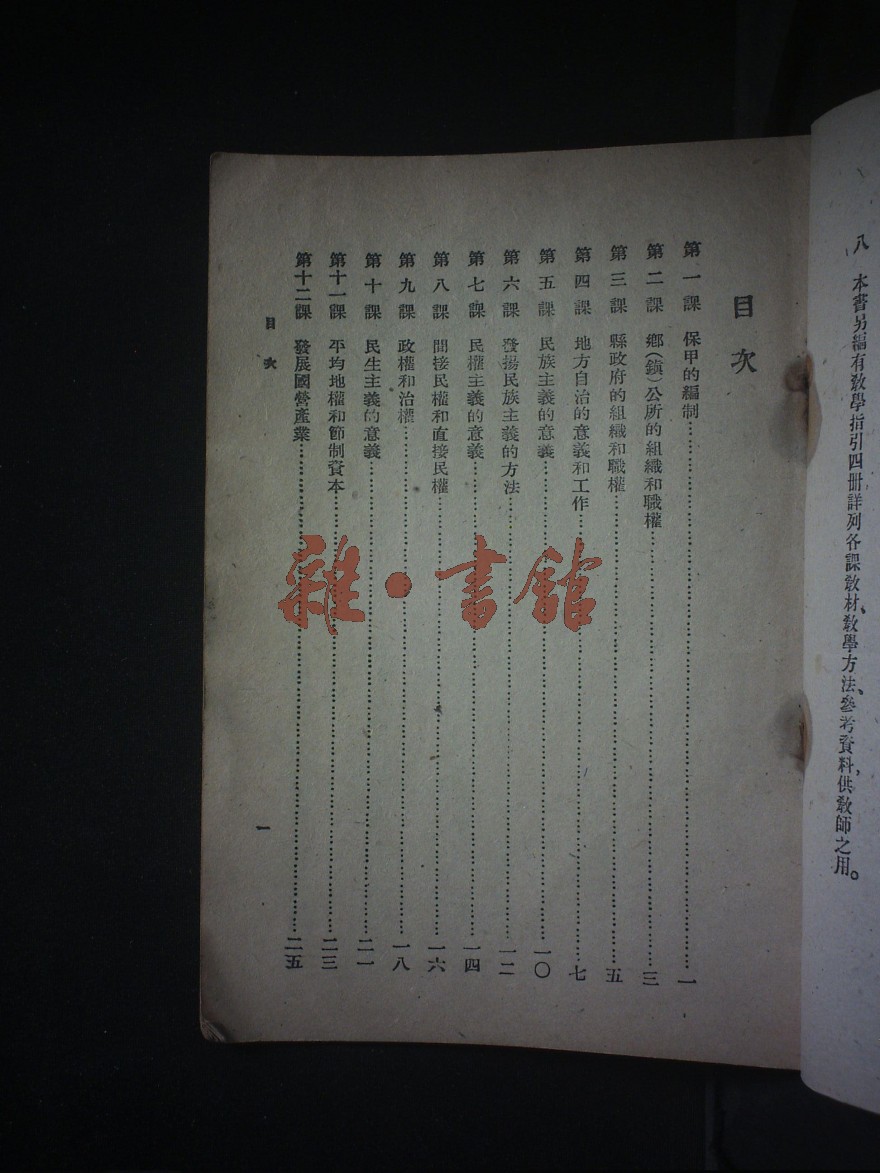 八　本書另編有教學指引四册詳列各課教材、教學方法、參考資料，供教師之用。
目次
第一課　保甲的編制……一
第二課　鄉（鎮）公所的組織和職權……三
第三課　縣政府的組織和職權……五
第四課　地方自治的意義和工作……七
第五課　民族主義的意義……一〇
第六課　發揚民族主義的方法……一二
第七課　民權主義的意義……一四
第八課　間接民權和直接民權……一六
第九課　政權和治權……一八
第十課　民生主義的意義……二一
第十一課　平均地權和節制資本……二三
第十二課　發展國營產業……二五
目次
一
雜·書館